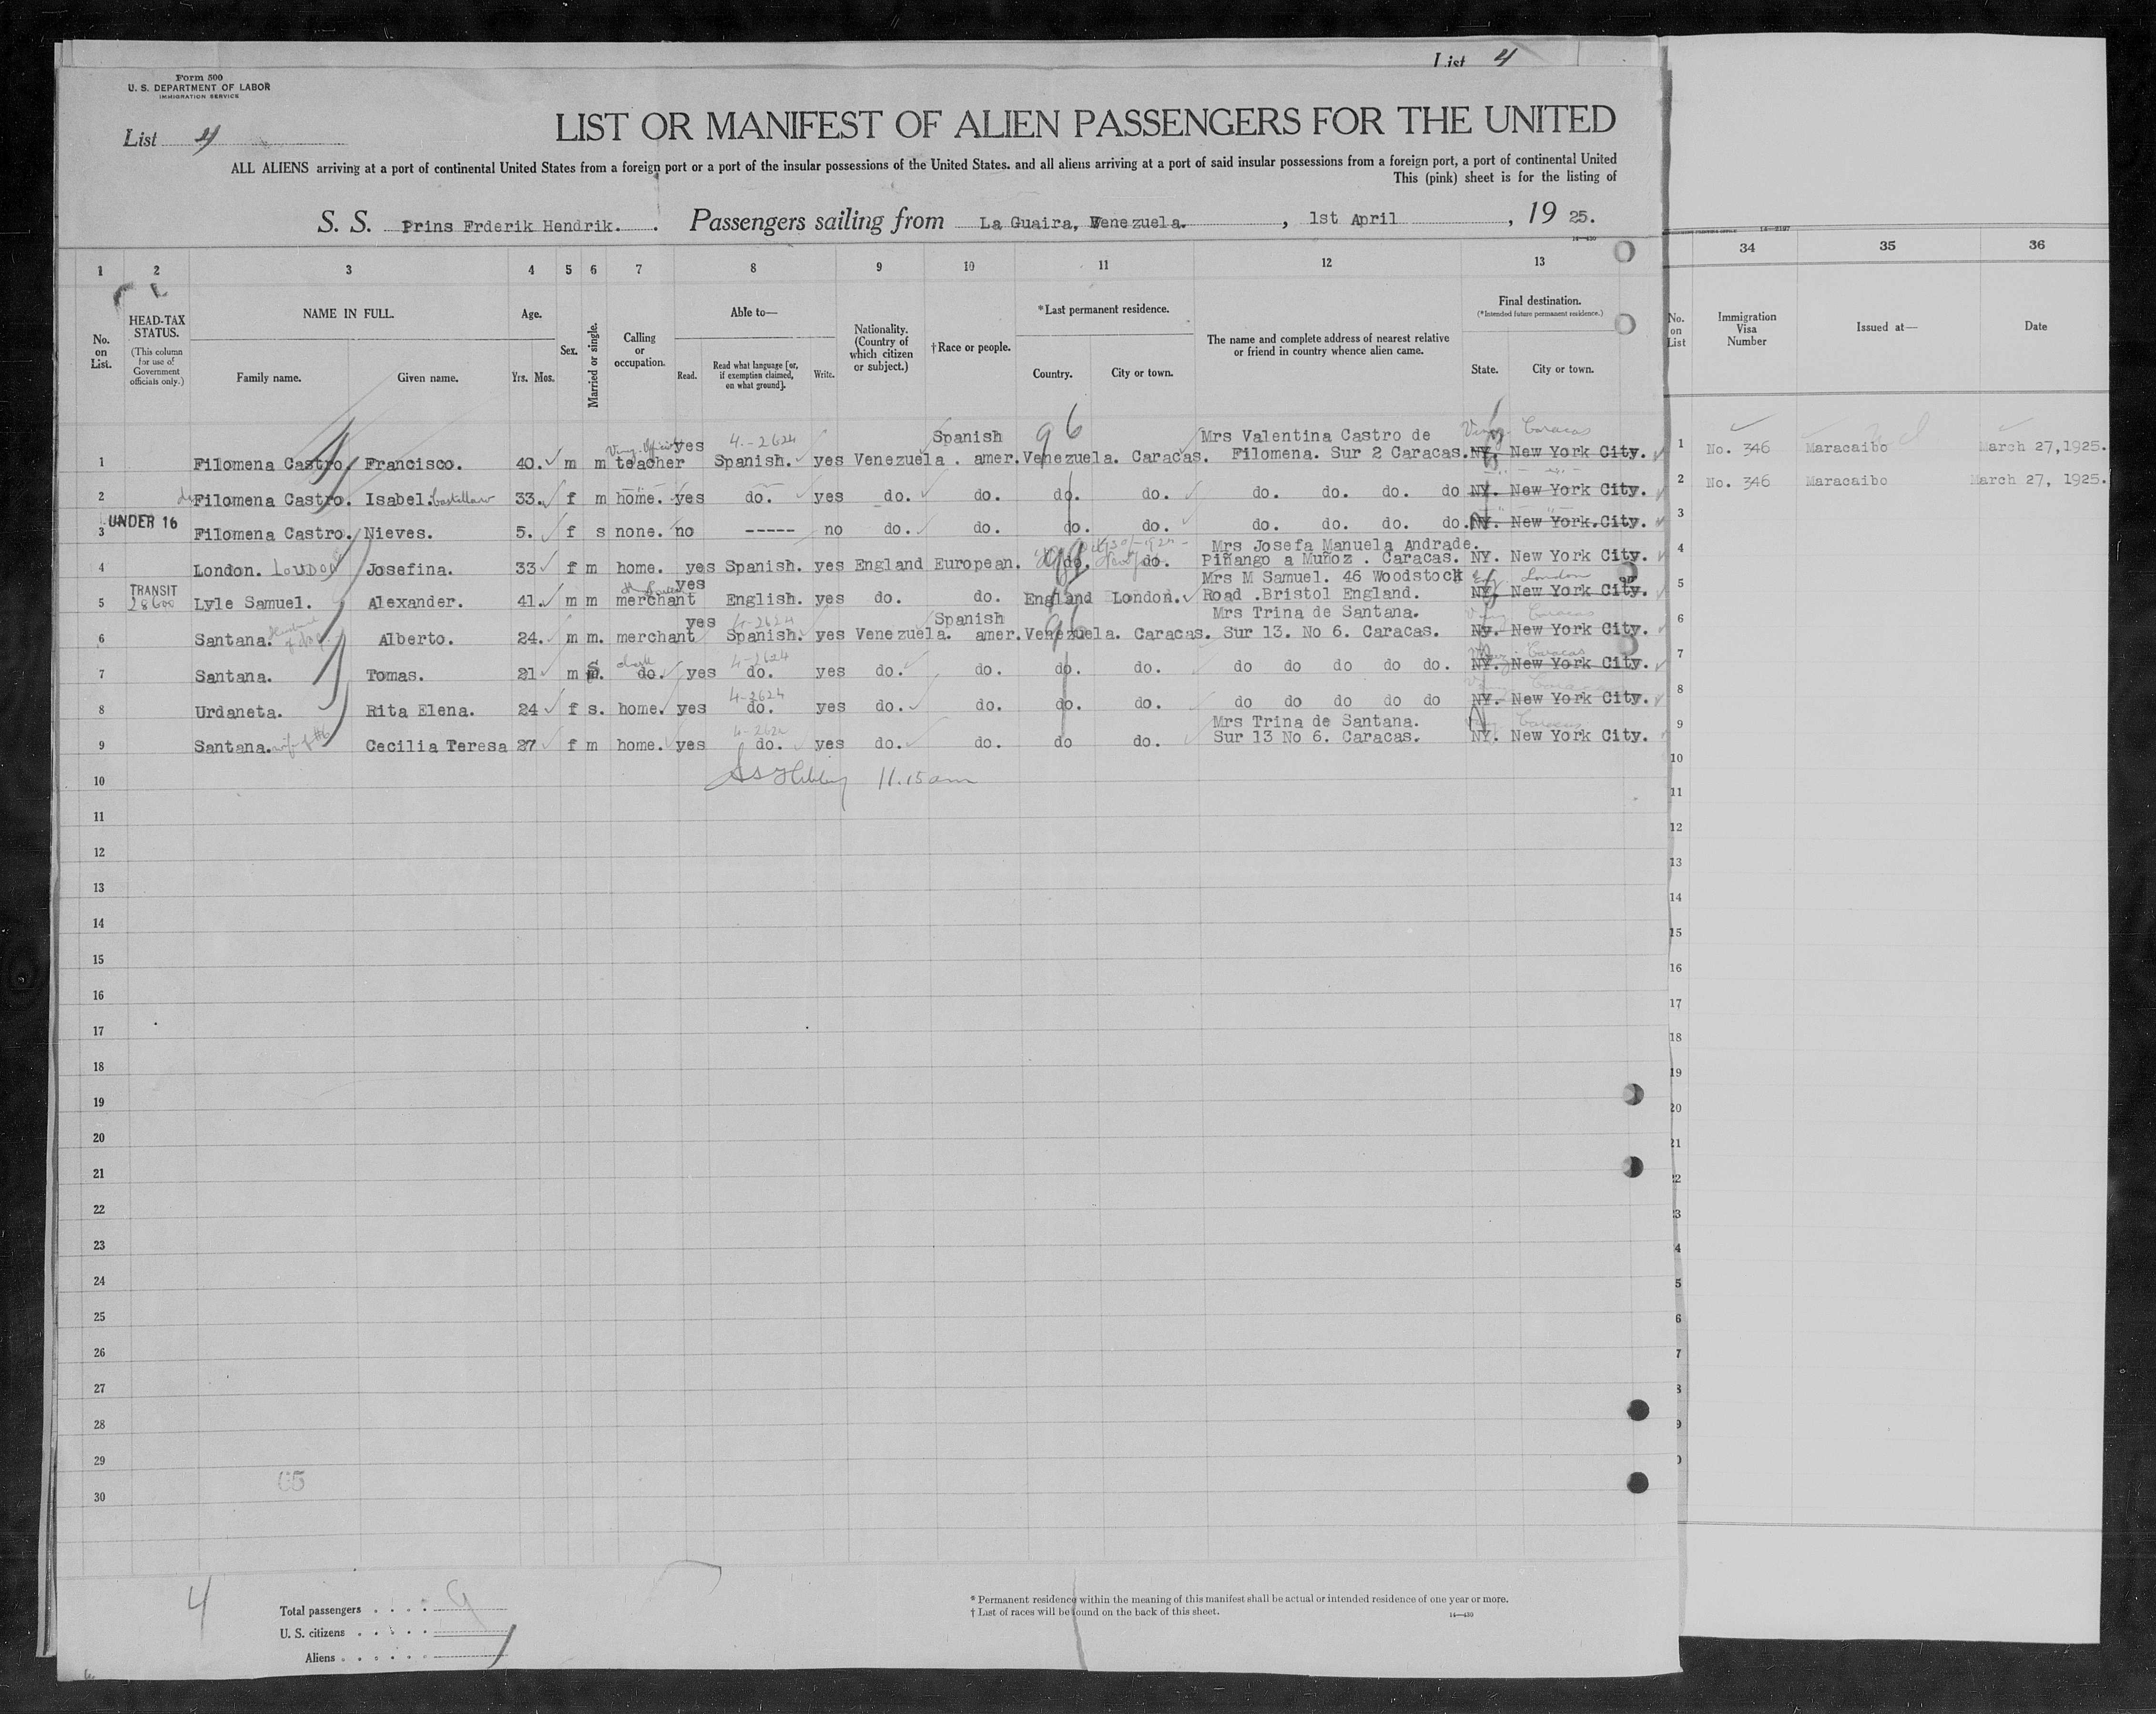 List 4
Form 500
U. S. DEPARTMENT OF LABOR
IMMIGRATION SERVICE
List 4
LIST OR MANIFEST OF ALIEN PASSENGERS FOR THE UNITED
ALL ALIENS arriving at a port of continental United States from a foreign port or a port of the insular possessions of the United States. and all aliens arriving at a port of said insular possessions from a foreign port, a port of continental United
This (pink) sheet is for the listing of
S. S. Prins Frderik Hendrik. Passengers sailing from La Guaira, Venezuela. , 1st April , 19 25.
14—430
14—2197
1 2 3 4 5 6 7 8 9 10 11 12 13 34 35 36
No. on List.
HEAD-TAX STATUS.
(This column for use of Government officials only.)
NAME IN FULL.
Family name. Given name.
Age.
Yrs. Mos.
Sex.
Married or single.
Calling or occupation.
Able to—
Read. Read what language [or, if exemption claimed, on what ground]. Write.
Nationality. (Country of which citizen or subject.)
†Race or people.
*Last permanent residence.
Country. City or town.
The name and complete address of nearest relative or friend in country whence alien came.
Final destination.
(*Intended future permanent residence.)
State. City or town.
No. on List
Immigration Visa Number
Issued at—
Date
yes 4.-2624 Spanish 96 Mrs Valentina Castro de Caracas
1 Filomena Castro, Francisco. 40. m m teacher Spanish. yes Venezuela. amer. Venezuela. Caracas. Filomena. Sur 2 Caracas. NY. New York City. 1 No. 346 Maracaibo March 27,1925.
2 de Filomena Castro. Isabel. Castellano 33. f m home. yes do. yes do. do. do. do. do. do. do. do NY. New York City. 2 No. 346 Maracaibo March 27, 1925.
UNDER 16
3 Filomena Castro. Nieves. 5. f s none. no ----- no do. do. do. do. do. do. do. do. NY. New York.City. 3
Mrs Josefa Manuela Andrade.
4 London. LOUDON Josefina. 33 f m home. yes Spanish. yes England European. do. do. Piñango a Muñoz . Caracas. NY. New York City. 4
TRANSIT yes Mrs M Samuel. 46 Woodstock London
5 28600 Lyle Samuel. Alexander. 41. m m merchant English. yes do. do. England London. Road .Bristol England. NY. New York City. 5
yes 4-2624 Spanish Mrs Trina de Santana. Caracas
6 Santana. Husband of No 9 Alberto. 24. m m. merchant Spanish. yes Venezuela. amer. Venezuela. Caracas. Sur 13. No 6. Caracas. NY. New York City. 6
clerk 4-2624 Caracas
7 Santana. Tomas. 21 m s do. yes do. yes do. do. do. do. do do do do do. NY. New York City. 7
4-2624
8 Urdaneta. Rita Elena. 24 f s. home. yes do. yes do. do. do. do. do do do do do NY. New York City. 8
Mrs Trina de Santana. Caracas
9 Santana. wife of #6 Cecilia Teresa 27 f m home. yes do. yes do. do. do do. Sur 13 No 6. Caracas. NY. New York City. 9
10 11.15 am 10
11 11
12 12
13 13
14 14
15 15
16 16
17 17
18 18
19 19
20 20
21 21
22 22
23 23
24 24
25 25
26 26
27 27
28 28
29 29
30 30
4
Total passengers . . . . 9
U. S. citizens . . . . .
Aliens . . . . . .
* Permanent residence within the meaning of this manifest shall be actual or intended residence of one year or more.
† List of races will be found on the back of this sheet.
14—430